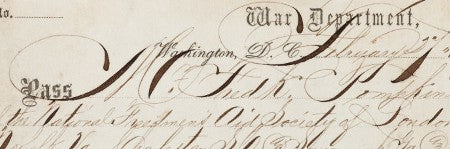 to.
War Department,
Washington, D. C. February
Pass Mr. Fredk. Tompkin
the National Freedmens Aid Society of London